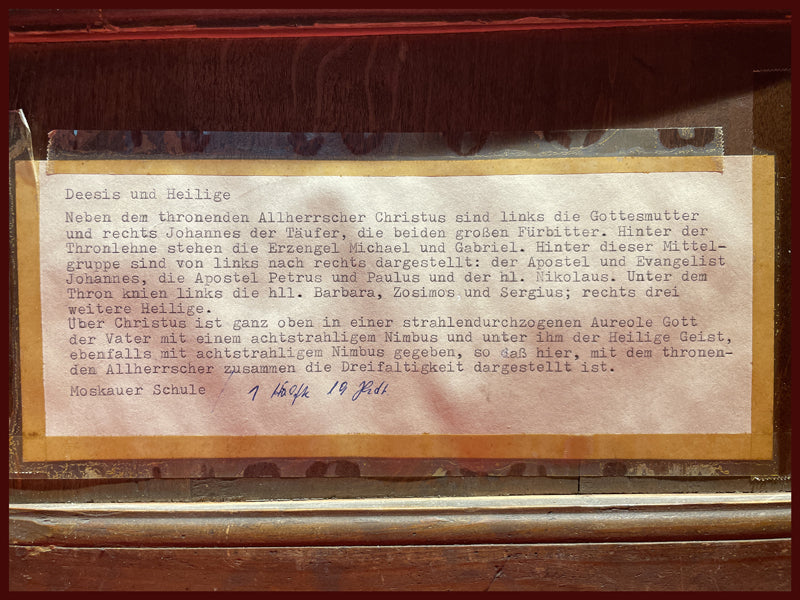 Deesis und Heilige
Neben dem thronenden Allherrscher Christus sind links die Gottesmutter
und rechts Johannes der Täufer, die beiden großen Fürbitter. Hinter der
Thronlehne stehen die Erzengel Michael und Gabriel. Hinter dieser Mittel-
gruppe sind von links nach rechts dargestellt: der Apostel und Evangelist
Johannes, die Apostel Petrus und Paulus und der hl. Nikolaus. Unter dem
Thron knien links die hll. Barbara, Zosimos und Sergius; rechts drei
weitere Heilige.
Über Christus ist ganz oben in einer strahlendurchzogenen Aureole Gott
der Vater mit einem achtstrahligem Nimbus und unter ihm der Heilige Geist,
ebenfalls mit achtstrahligem Nimbus gegeben, so daß hier, mit dem thronen-
den Allherrscher zusammen die Dreifaltigkeit dargestellt ist.
Moskauer Schule 1 Hälfte 19 Jhdt